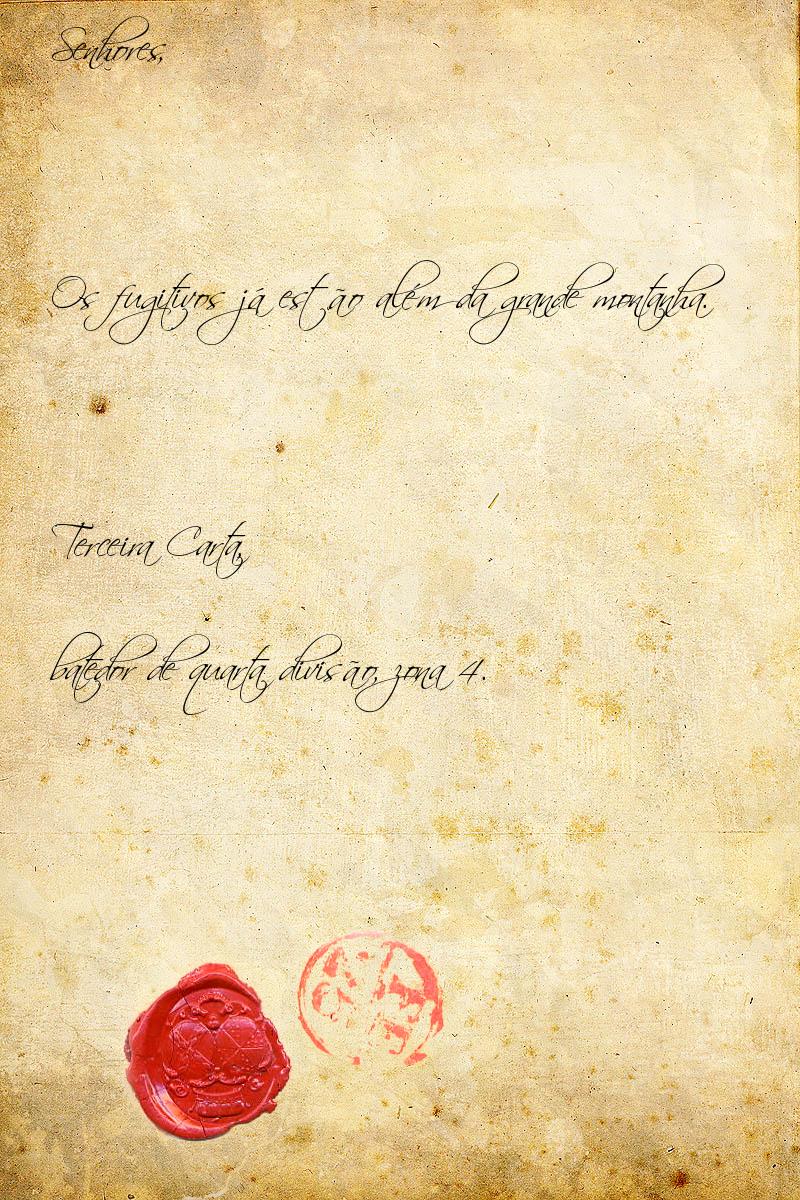 Senhores,
Os fugitivos já estão além da grande montanha.
Terceira Carta,
batedor de quarta divisão, zona 4.